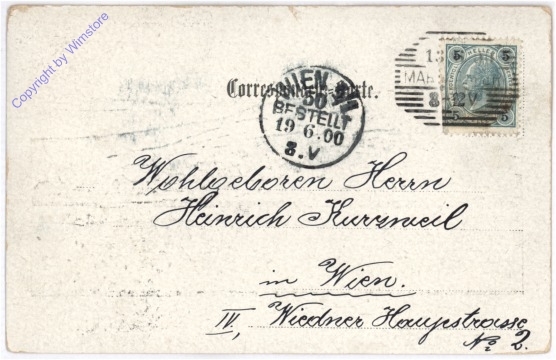 Copyright by Wimstore
Correspondenz-Karte.
WIEN
50
BESTELLT
19 6.00
8.V
13
MAR
8-12V
5 HELLER 5
5 5
Wohlgeboren Herrn
Heinrich Kurzweil
in Wien.
IV, Wiedner Haupstrasse
No 2.